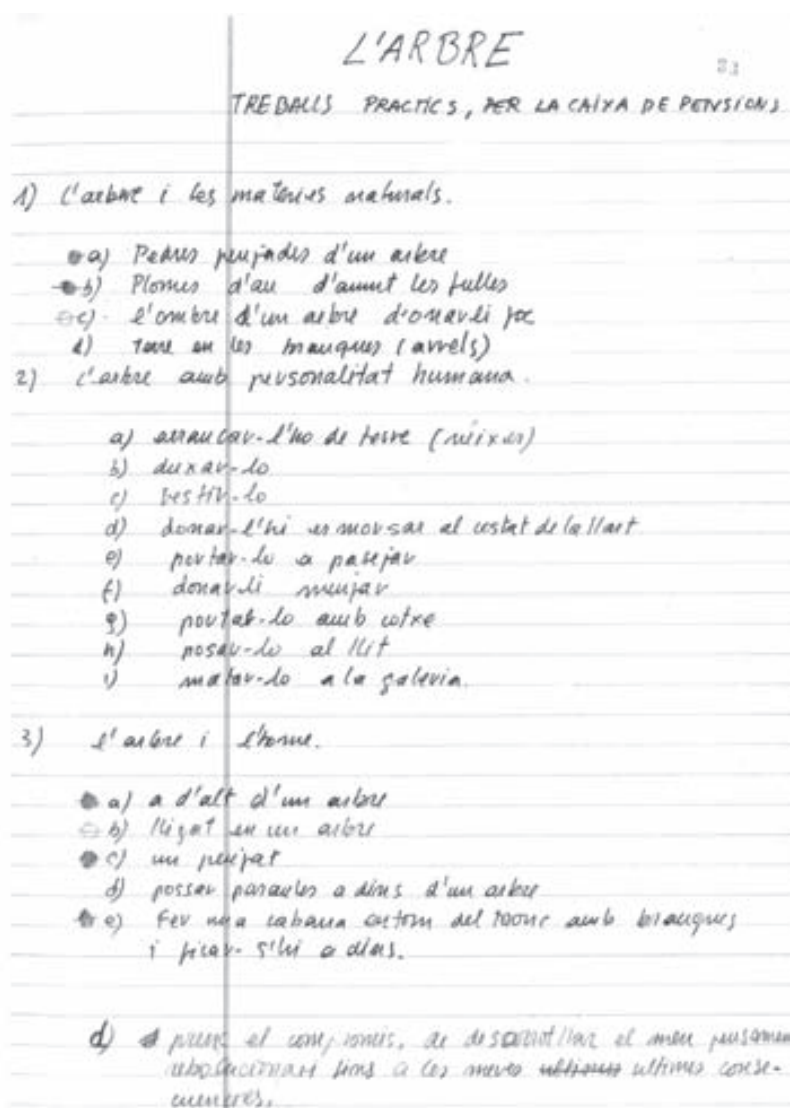 L'ARBRE
TREBALLS PRACTICS, PER LA CAIXA DE PENSIONS
1) L'arbre i les materies naturals.
a) Pedres penjades d'un arbre
b) Plomes d'au d'amunt les fulles
c) l'ombre d'un arbre donar-li foc
d) Terre en les branques (arrels)
2) L'arbre amb personalitat humana.
a) arrancar-l'ho de terre (néixer)
b) duxar-lo
c) vestir-lo
d) donar-l'hi esmorsar al costat de la llart
e) portar-lo a pasejar
f) donar-li menjar
g) portar-lo amb cotxe
h) posar-lo al llit
i) matar-lo a la galeria.
3) l'arbre i l'home.
a) a d'alt d'un arbre
b) lligat en un arbre
c) un penjat
d) possar paraules a dins d'un arbre
e) Fer una cabana entorn del tronc amb branques
i ficar-s'hi a dins.
d) prenc el compromis, de desarrotllar el meu pensament
rebolucionari fins a les meves ultimes conse-
cuencies.